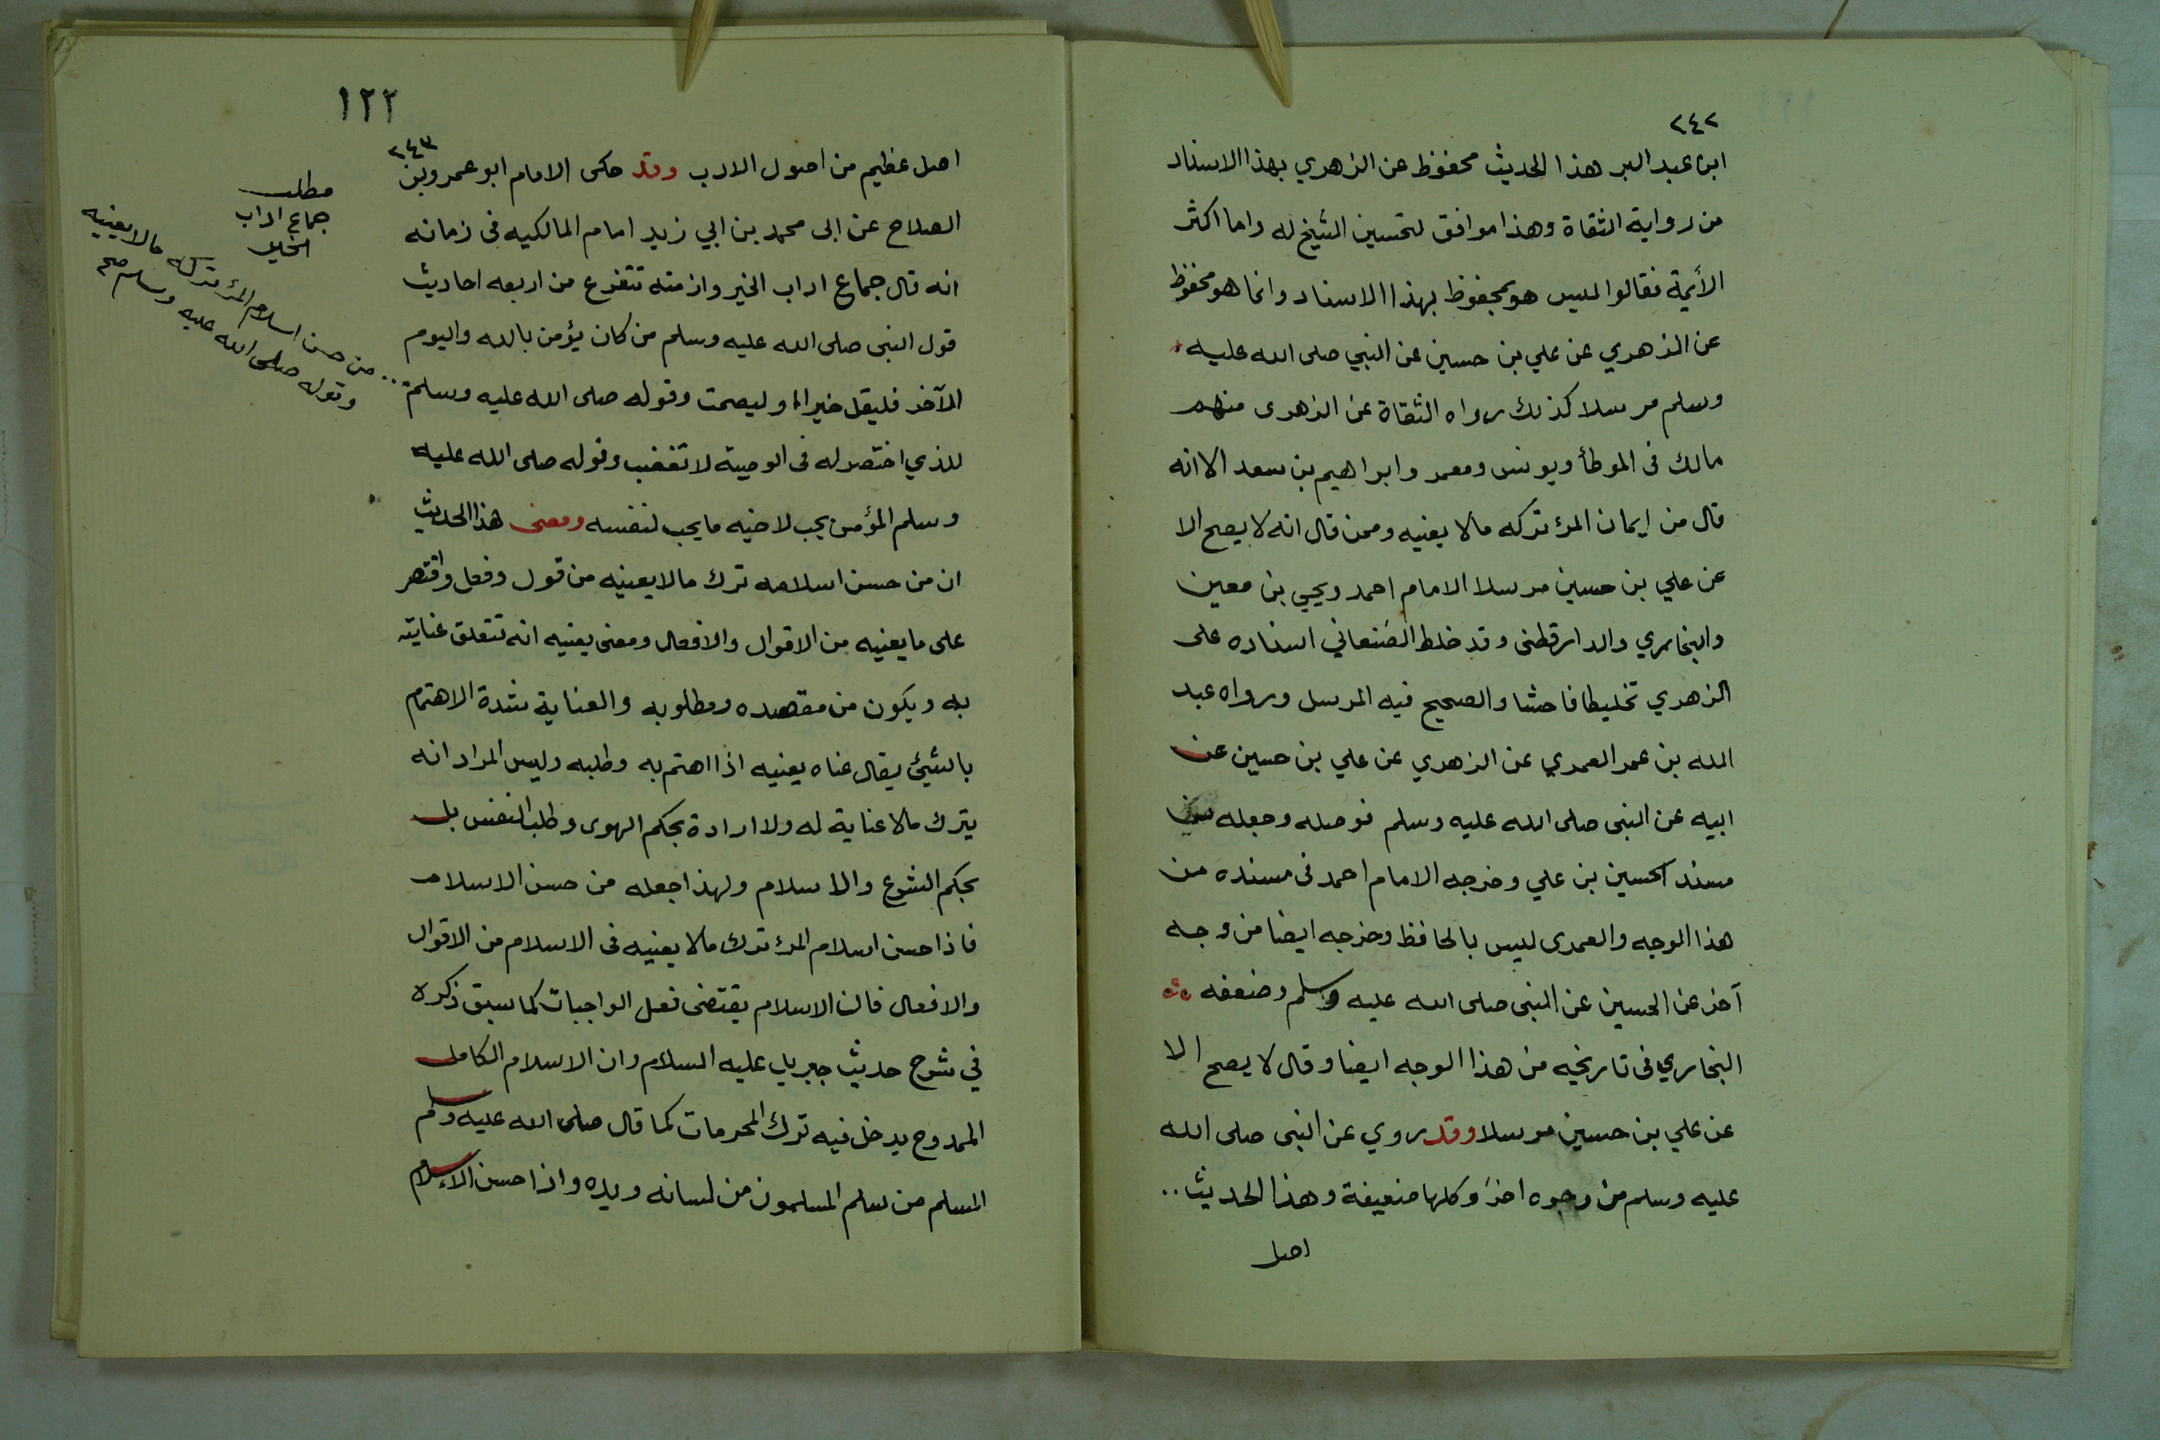 ٢٤٢
ابن عبد البر هذا الحديث محفوظ عن الزهري بهذا الاسناد
من رواية الثقاة وهذا موافق لتحسين الشيخ له واما اكثر
الأيمة فقالوا ليس هو بمحفوظ بهذا الاسناد وانما هو محفوظ
عن الزهري عن علي بن حسين عن النبي صلى الله عليه
وسلم مرسلا كذلك رواه الثقاة عن الزهرى منهم
مالك فى الموطأ ويونس ومعمر وابراهيم بن سعد الا انه
قال من إيمان المرء تركه مالا يعنيه وممن قال انه لا يصح الا
عن علي بن حسين مرسلا الامام احمد ويحيى بن معين
والبخاري والدارقطنى وقد خلط الصنعاني اسناده على
الزهري تخليطا فاحشا والصحيح فيه المرسل ورواه عبد
الله بن عمر العمري عن الزهري عن علي بن حسين عن
ابيه عن النبى صلى الله عليه وسلم فوصله وجعله من
مسند الحسين بن علي وخرجه الامام احمد فى مسنده من
هذا الوجه والعمرى ليس بالحافظ وخرجه ايضا من وجه
آخر عن الحسين عن النبى صلى الله عليه وسلم وضعفه
البخاري فى تاريخيه من هذا الوجه ايضا وقال لا يصح الا
عن علي بن حسين مرسلا وقد روي عن النبى صلى الله
عليه وسلم من وجوه اخر وكلها ضعيفة وهذا الحديث..
اصل
١٢٢
٢٤٣
اصل عظيم من اصول الادب وقد حكى الامام ابو عمرو بن
الصلاح عن ابى محمد بن ابي زيد امام المالكيه فى زمانه
انه قال جماع اداب الخير وازمته تتفرع من اربعه احاديث
قول النبى صلى الله عليه وسلم من كان يؤمن بالله واليوم
الآخر فليقل خيرا او ليصمت وقوله صلى الله عليه وسلم
للذي اختصر له فى الوصية لا تغضب وقوله صلى الله عليه
وسلم المؤمن يحب لاخيه ما يحب لنفسه ومعنى هذا الحديث
ان من حسن اسلامه ترك مالا يعينه من قول وفعل واقتصر
على ما يعنيه من الاقوال والافعال ومعنى يعنيه انه تتعلق عنايته
به ويكون من مقصده ومطلوبه والعناية شدة الاهتمام
بالشيئ يقال عناه يعنيه اذا اهتم به وطلبه وليس المراد انه
يترك مالا عناية له ولا ارادة بحكم الهوى وطلب النفس بل
بحكم الشرع والاسلام ولهذا جعله من حسن الاسلام
فاذا حسن اسلام المرء ترك مالا يعنيه فى الاسلام من الاقوال
والافعال فان الاسلام يقتضى فعل الواجبات كما سبق ذكره
في شرح حديث جبريل عليه السلام وان الاسلام الكامل
الممدوح يدخل فيه ترك المحرمات كما قال صلى الله عليه وسلم
المسلم من سلم المسلمون من لسانه ويده واذا حسن الاسلام
مطلب
جماع اداب
الخير
من حسن اسلام المرء تركه مالا يعنيه
وقوله صلى الله عليه وسلم صح